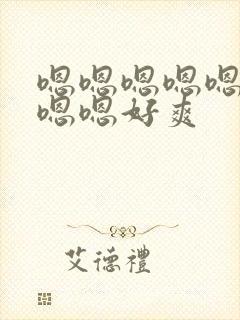 嗯嗯嗯嗯嗯
嗯嗯好爽
艾德禮